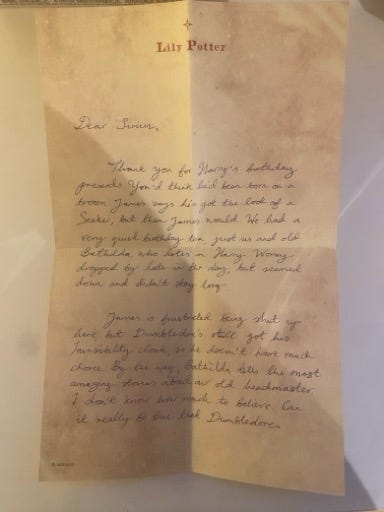 Lily Potter
Dear Sirius,
Thank you for Harry's birthday
present You'd think he'd been born on a
broom James says he's got the look of a
Seeker, but then James would We had a
very quiet birthday tea, just us and old
Bathilda, who dotes on Harry. Wormy
dropped by late in the day, but seemed
down and didn't stay long
James is frustrated being shut up
here but Dumbledore's still got his
Invisibility cloak, so he doesn't have much
choice By the way, Bathilda tells the most
amazing stories about our old headmaster
I don't know how much to believe Can
it really be true that Dumbledore